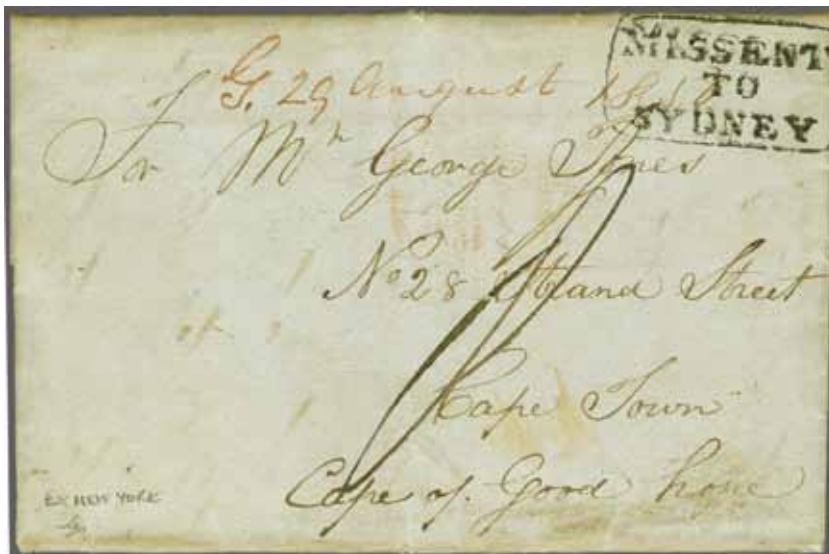 MISSENT
TO
SYDNEY
G. 29 August
For Mr George
No 28 Strand Street
Cape Town
Cape of Good hope
EX NEW YORK